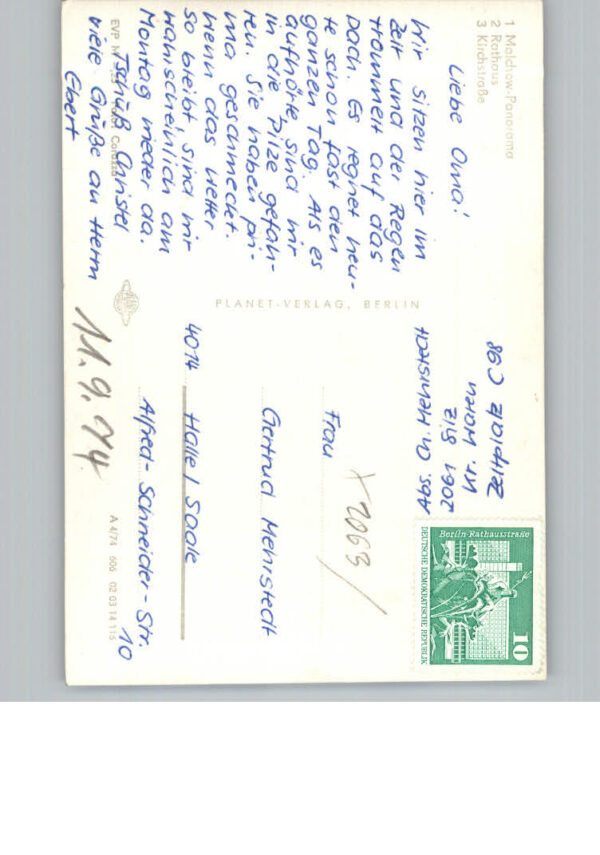 1 Malchow-Panorama
2 Rathaus
3 Kirchstraße
Liebe Oma!
Wir sitzen hier im
Zelt und der Regen
trommelt auf das
Dach. Es regnet heu-
te schon fast den
ganzen Tag. Als es
aufhörte, sind wir
in die Pilze gefah-
ren. Sie haben pri-
ma geschmeckt.
Wenn das Wetter
so bleibt, sind wir
wahrscheinlich am
Montag wieder da.
Tschüß Christel
Viele Grüße an Herrn
Ebert
EVP M
PLANET-VERLAG, BERLIN
11.9.74
Abs. Ch. Mehrstedt
2061 Siz
Kr. Waren
Zeltplatz C98
Berlin-Rathausstraße
DEUTSCHE DEMOKRATISCHE REPUBLIK
10
X2063/
Frau
Gertrud Mehrstedt
4014 Halle / Saale
Alfred-Schneider-Str.
10
A 4/74 606 02 03 14 115